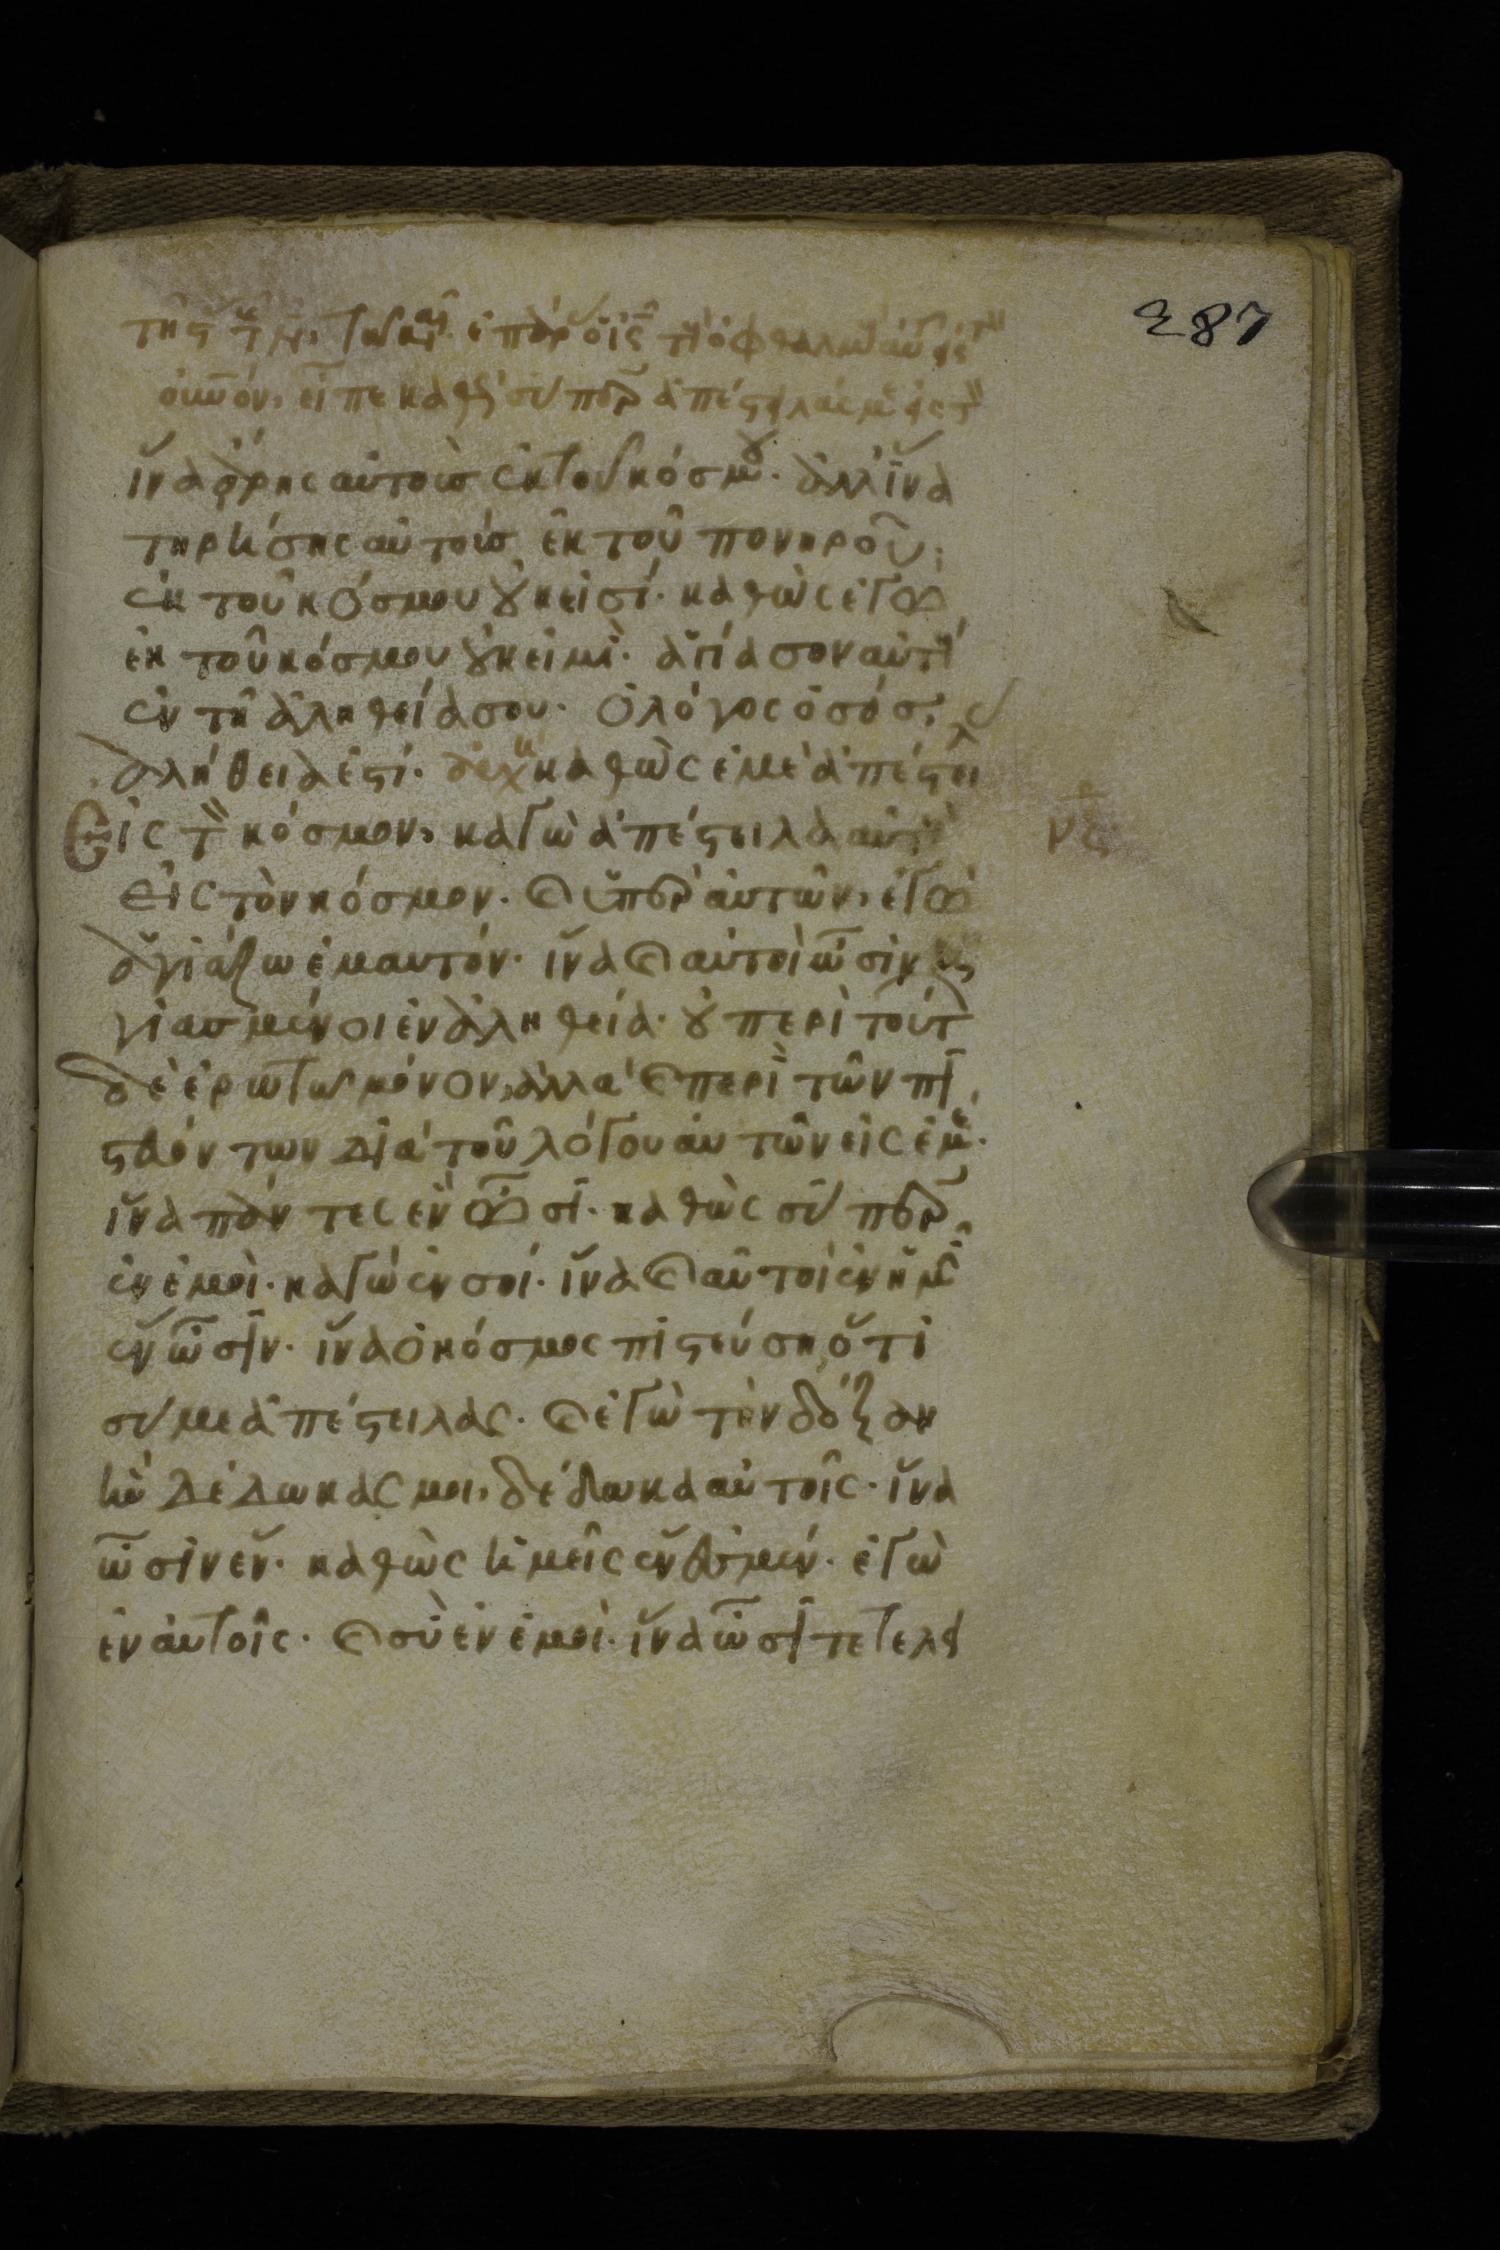 287
ἵνα ἄρης αὐτοὺσ ἐκ τοῦ κόσμου. ἀλλ' ἵνα
τηρήσης αὐτοὺσ ἐκ τοῦ πονηροῦ;
ἐκ τοῦ κόσμου οὐκ εἰσί. καθὼς ἐγὼ
ἐκ τοῦ κόσμου οὐκ εἰμὶ. ἁγίασον αὐτοὺ
ἐν τῆ ἀληθεία σου. ὁ λόγος ὁ σόσ,
ἀλήθεια ἐστί. καθὼς ἐμὲ ἀπέστει
εἰς τὸν κόσμον, καγὼ ἀπέστειλα αὐτοὺ
νς
εἰς τὸν κόσμον. καὶ ὑπὲρ αὐτῶν, ἐγὼ
ἁγιάζω ἐμαυτόν. ἵνα καὶ αὐτοὶ ὦσιν
γιασμένοι ἐν ἀληθεία. οὐ περὶ τούτ
δὲ ἐρωτῶ μόνον, ἀλλὰ καὶ περὶ τῶν πι
στευόντων διὰ τοῦ λόγου αὐτῶν εἰς ἐμέ.
ἵνα πάντες ἓν ὦσι. καθὼς σὺ περ
ἐν ἐμοὶ. καγὼ ἐν σοί. ἵνα καὶ αὐτοὶ ἐν ἡμῖ
ἓν ὦσιν. ἵνα ὁ κόσμος πιστεύση, ὅτι
σύ με ἀπέστειλας. καὶ ἐγὼ τὴν δόξαν
ἣν δέδωκας μοι, δέδωκα αὐτοῖς. ἵνα
ὦσιν ἕν. καθὼς ἡμεῖς ἕν ἐσμέν. ἐγὼ
ἐν αὐτοῖς. καὶ σὺ ἐν ἐμοὶ. ἵνα ὦσι τετελει